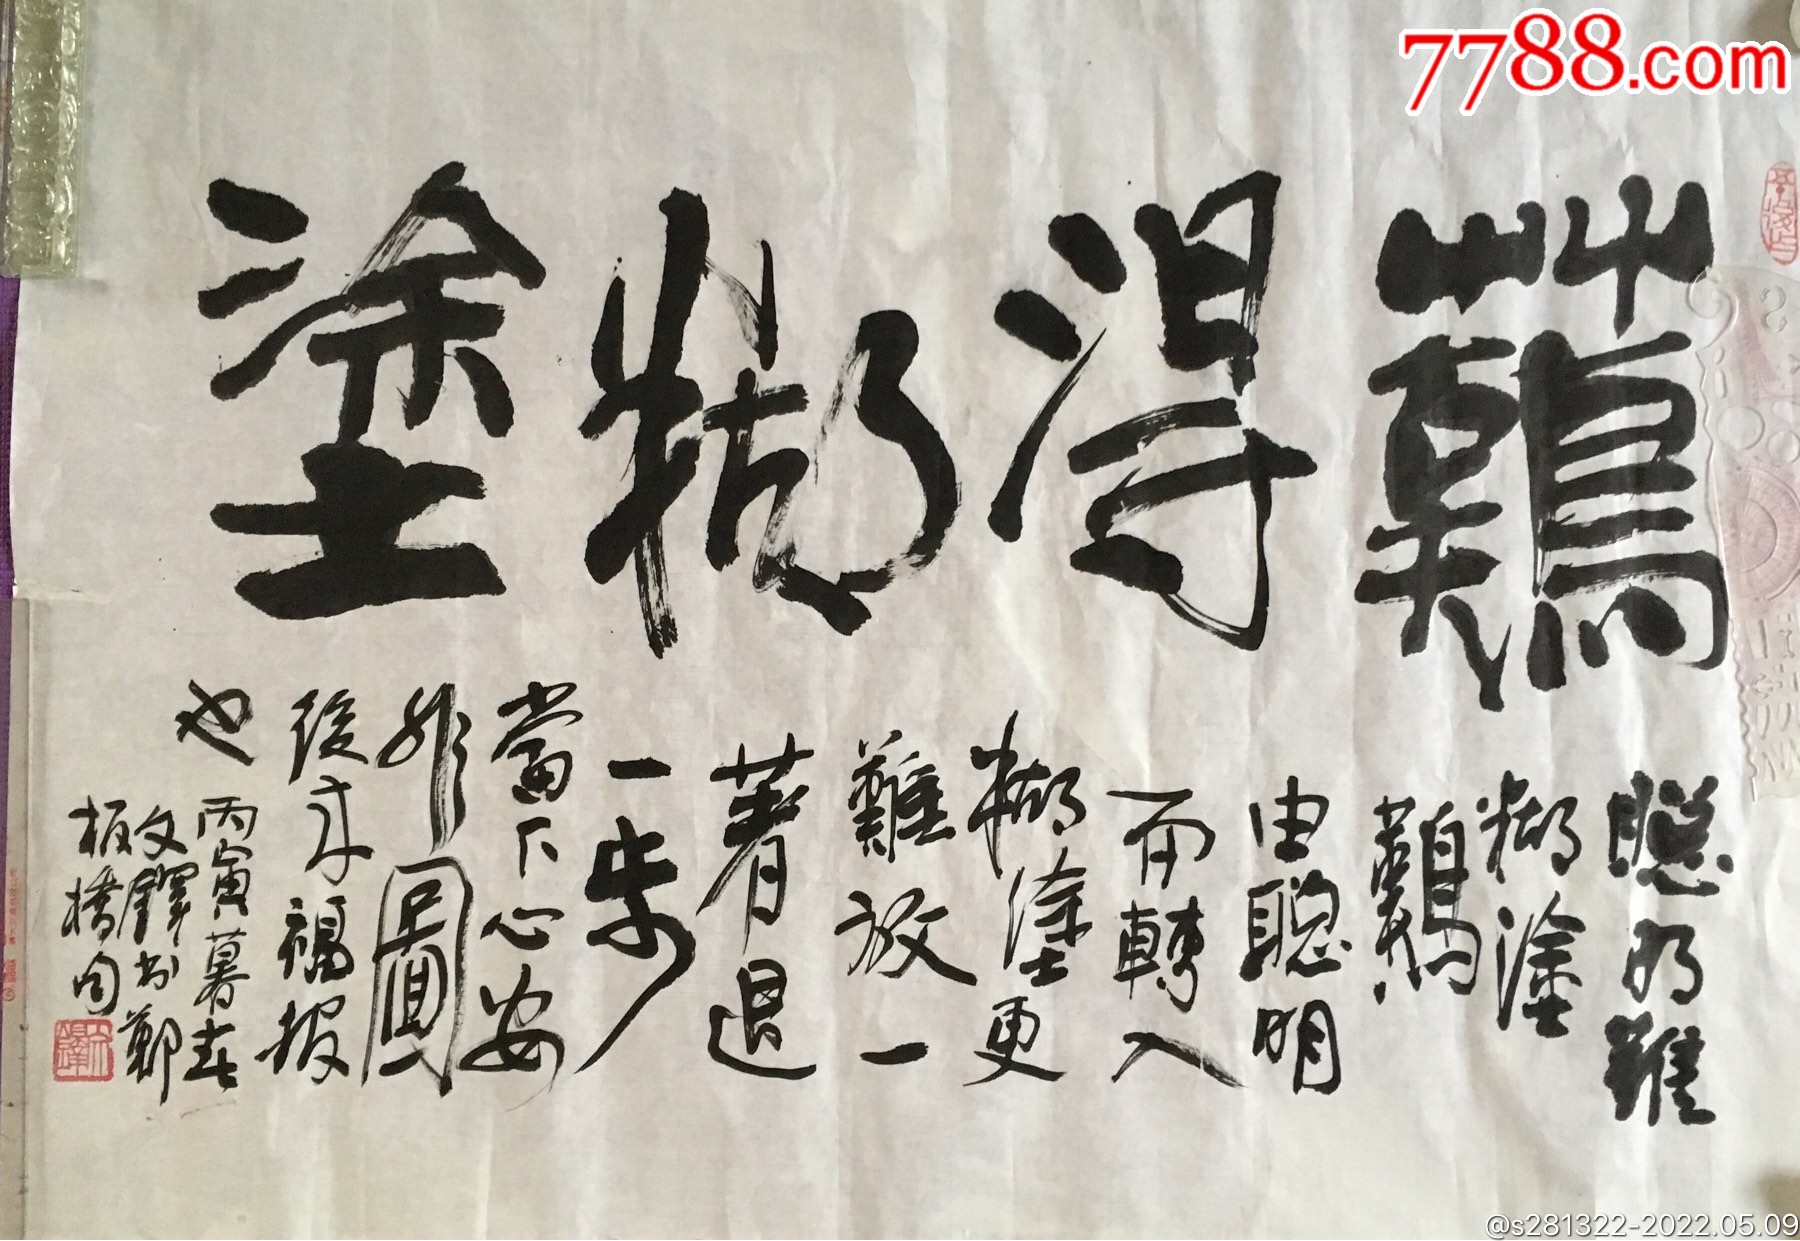 7788.com
難得糊塗
聰明難
糊塗
難
由聰明
而轉入
糊塗更
難放一
著退
一步
當下心安
非圖
後來福報
也
丙寅暮春
文鐸书鄭
板橋句
@s281322-2022.05.09